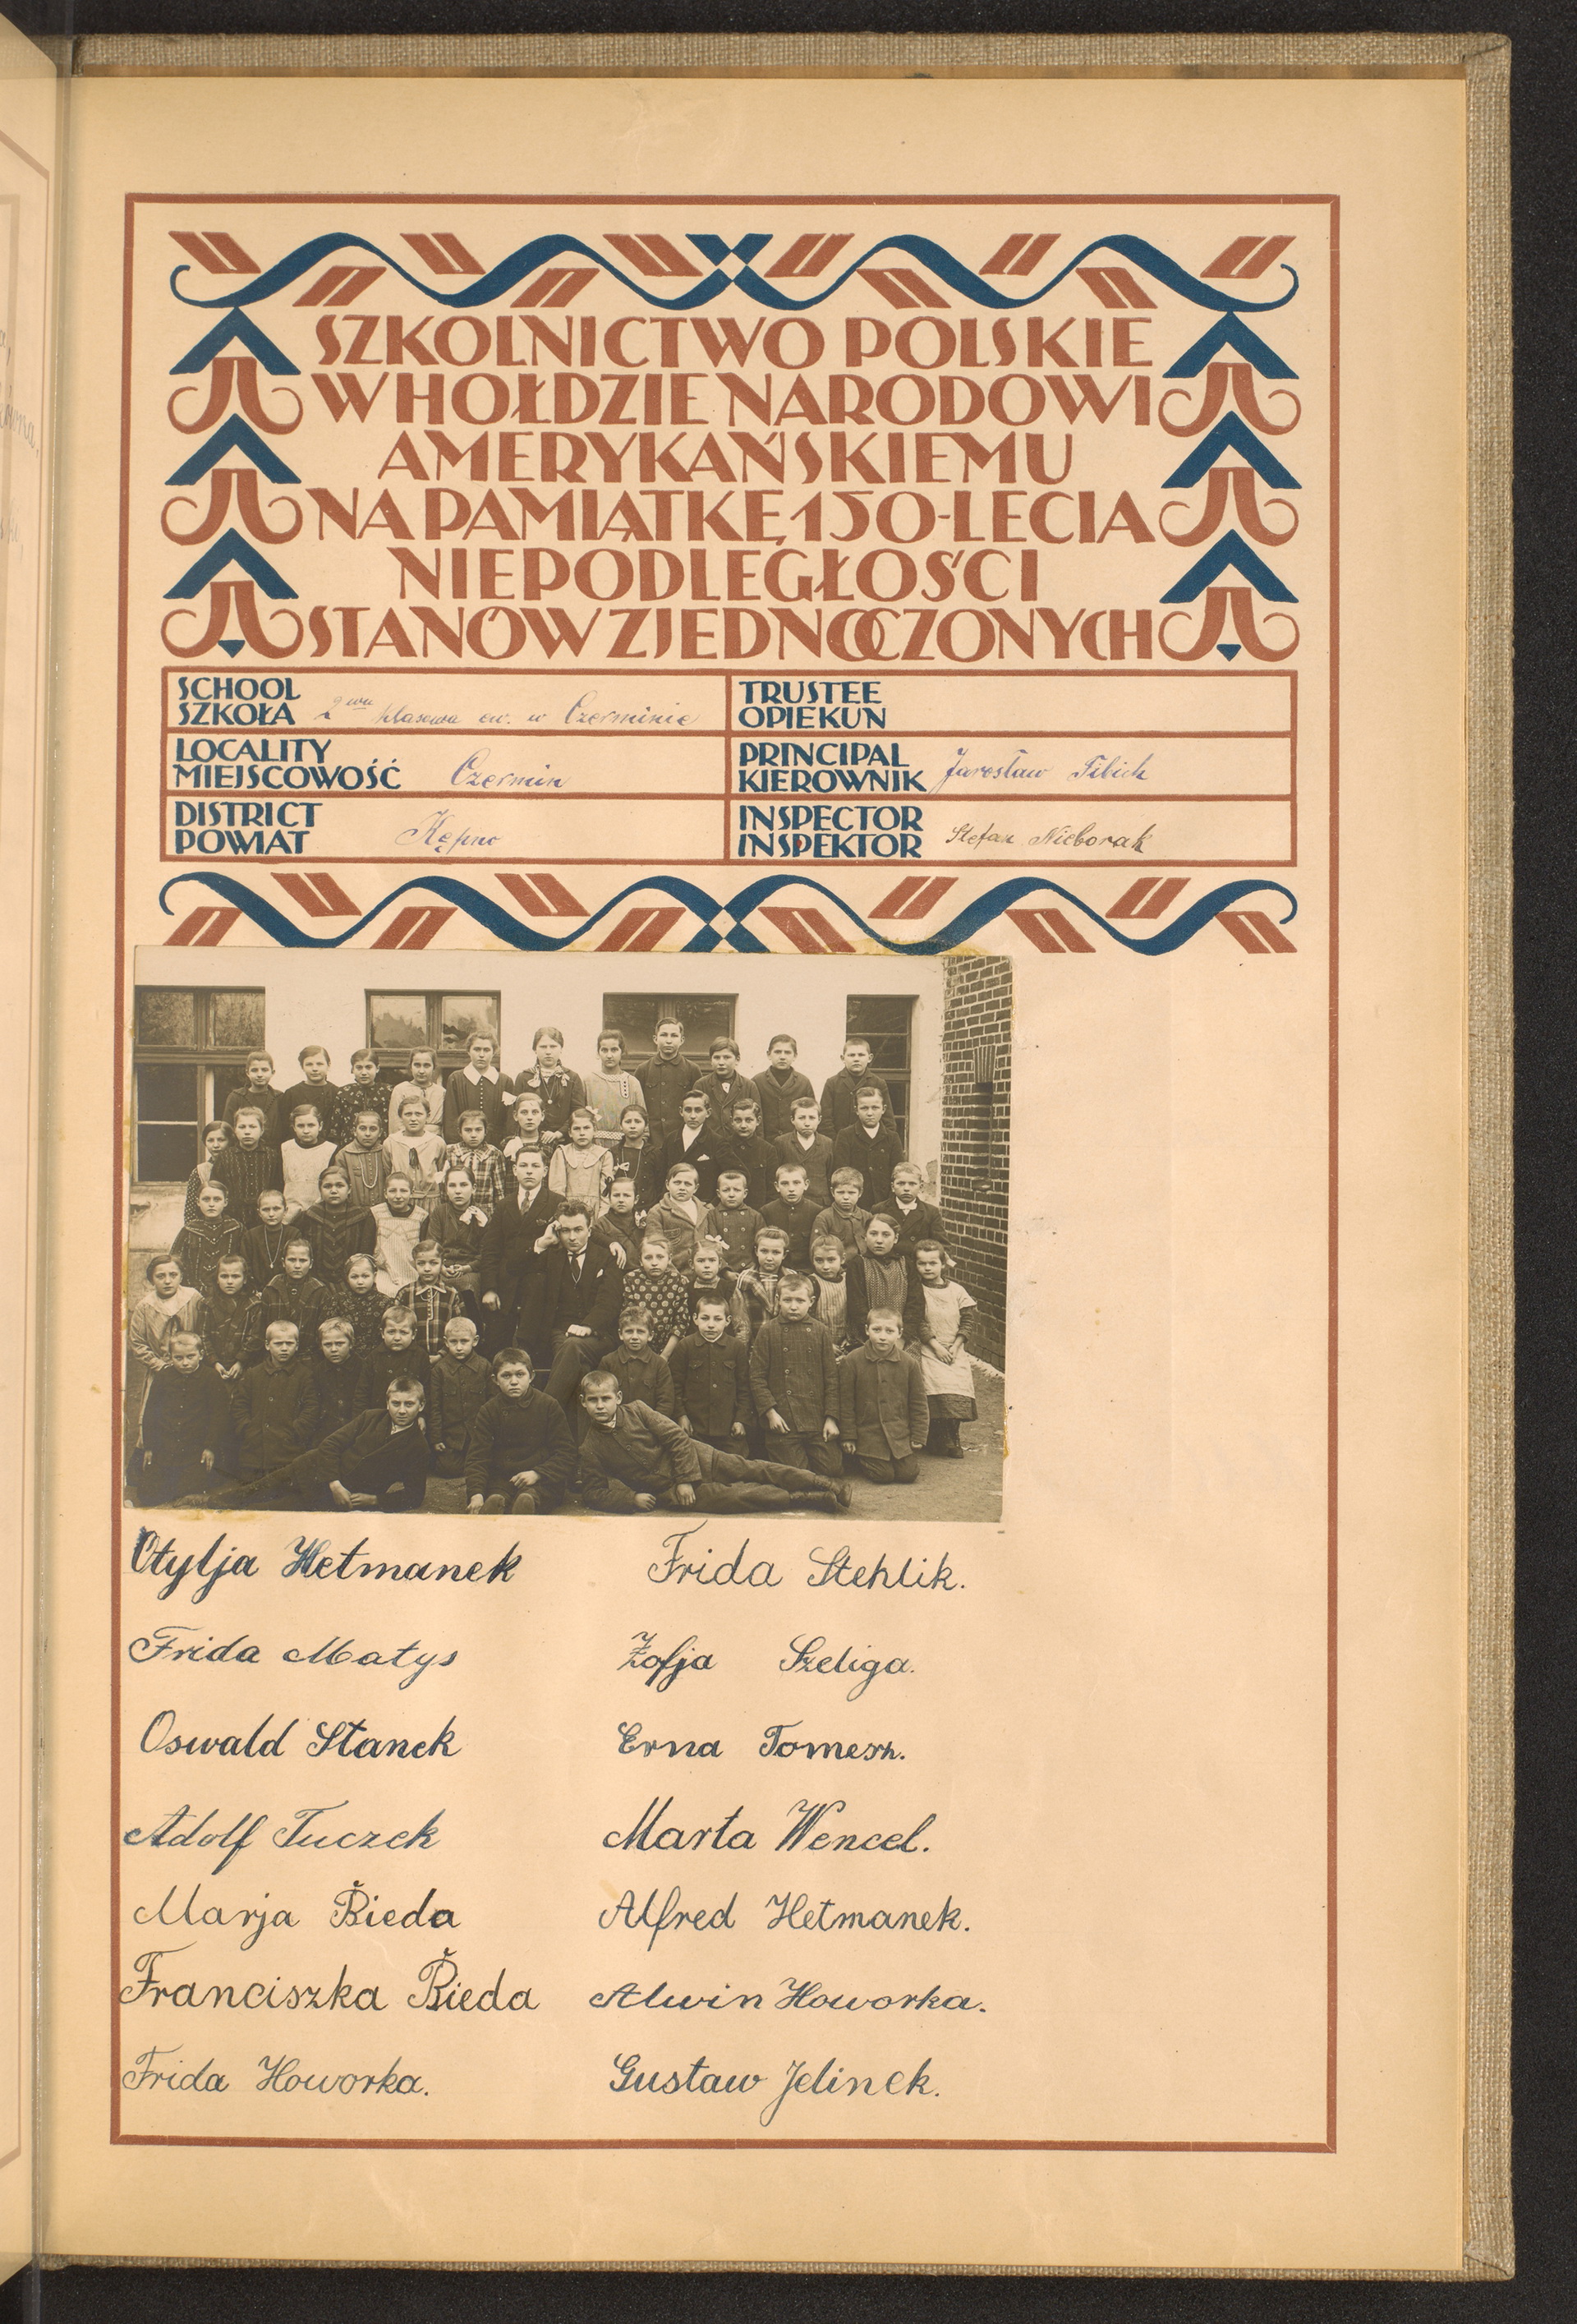 SZKOLNICTWO POLSKIE
W HOŁDZIE NARODOWI
AMERYKAŃSKIEMU
NA PAMIĄTKĘ 150-LECIA
NIEPODLEGŁOŚCI
STANÓW ZJEDNOCZONYCH
SCHOOL
SZKOŁA 2wu klasowa ew. w Czerminie
TRUSTEE
OPIEKUN
LOCALITY
MIEJSCOWOŚĆ Czermin
PRINCIPAL
KIEROWNIK Jarosław Tibich
DISTRICT
POWIAT Kępno
INSPECTOR
INSPEKTOR Stefan Nieborak
Otylja Hetmanek
Frida Stehlik.
Frida Matys
Zofja Szeliga.
Oswald Stanek
Erna Tomesz.
Adolf Tuczek
Marta Wencel.
Marja Bieda
Alfred Hetmanek.
Franciszka Bieda
Alwin Howorka.
Frida Howorka.
Gustaw Jelinek.